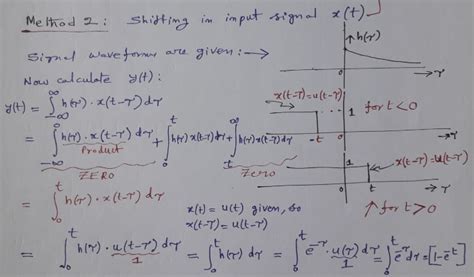 Method 2: Shifting in input signal x(t)
Signal waveforms are given:→
Now calculate y(t):
y(t) = ∫_{-∞}^{∞} h(τ) · x(t-τ) dτ
= ∫_{-∞}^{0} h(τ) · x(t-τ) dτ + ∫_{0}^{t} h(τ) x(t-τ) dτ + ∫_{t}^{∞} h(τ) x(t-τ) dτ
Product
ZERO
Zero
= ∫_{0}^{t} h(τ) · x(t-τ) dτ
x(t) = u(t) given, so
x(t-τ) = u(t-τ)
= ∫_{0}^{t} h(τ) · u(t-τ) dτ = ∫_{0}^{t} h(τ) dτ = ∫_{0}^{t} e^{-τ} · u(τ) dτ = ∫_{0}^{t} e^{-τ} dτ = [1-e^{-t}]
1
1
h(τ)
0
τ
x(t-τ) = u(t-τ)
1
for t<0
-t
0
τ
1
x(t-τ) = u(t-τ)
0
t
τ
↑ for t>0